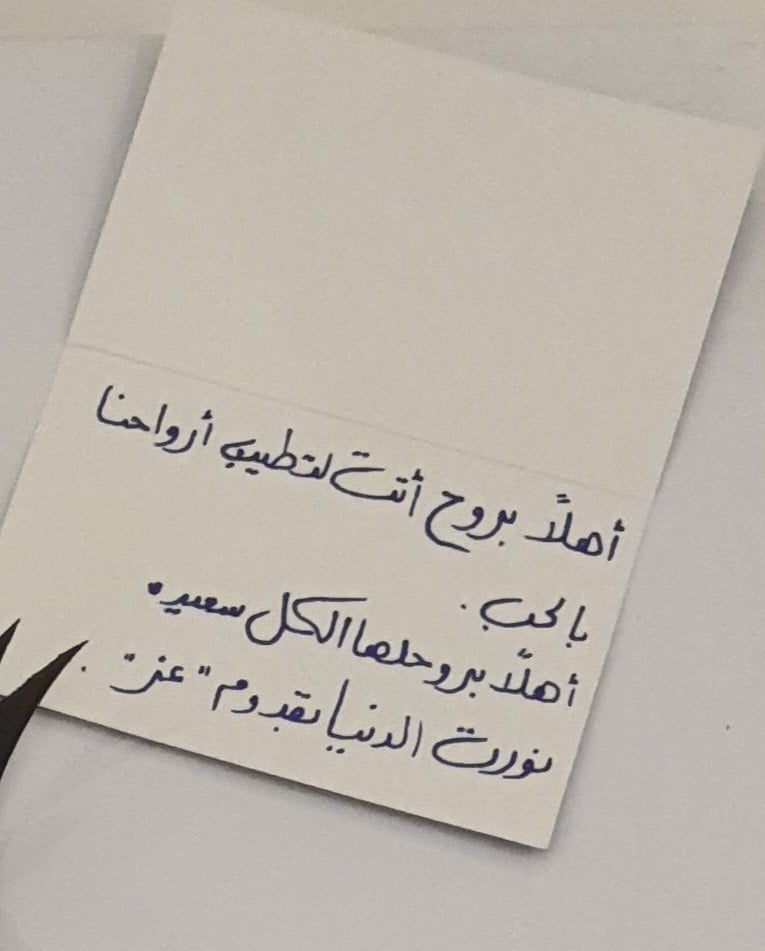 أهلاً بروح أتت لتطيب أرواحنا
بالحب.
أهلاً بروح لها الكل سعيد.
نورت الدنيا بقدوم "عز".